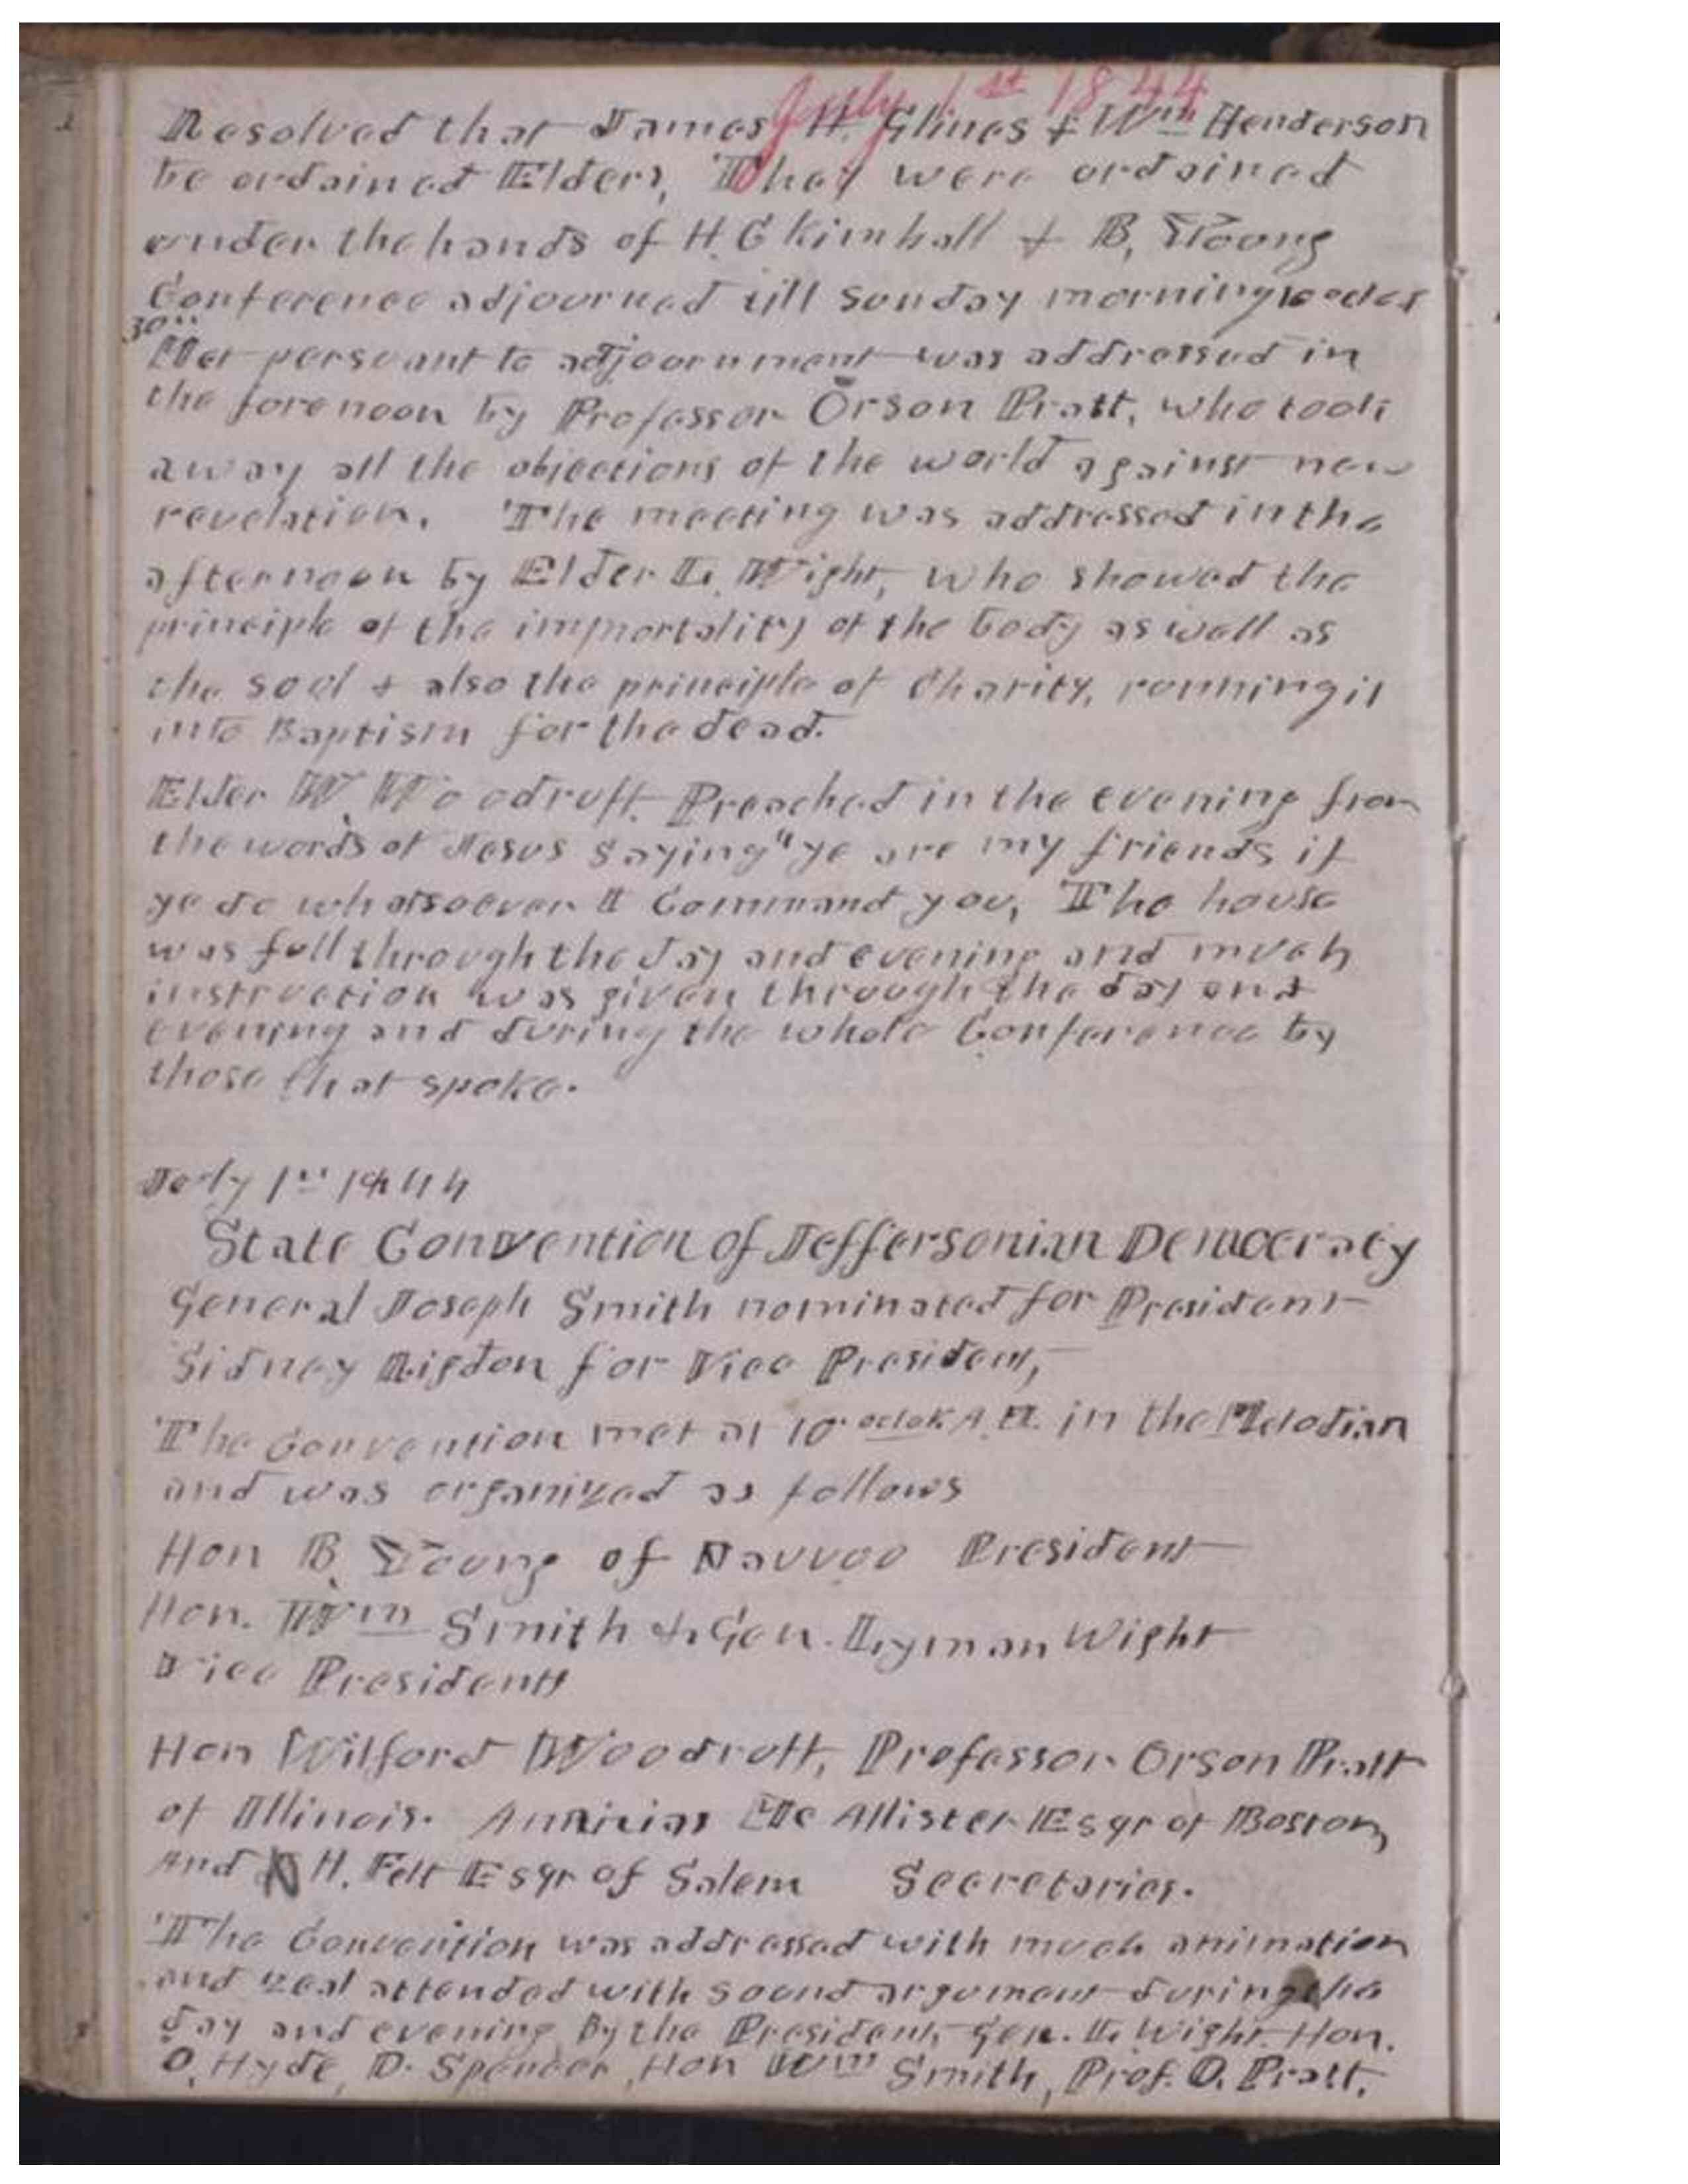 July 1st 1844
Resolved that James H. Glines & Wm Henderson
be ordained Elders, They were ordained
under the hands of H. C Kimball & B, Young
Conference adjourned till sunday morning
30th
Met persuant to adjournment was addressed in
the forenoon by Professor Orson Pratt, who took
away all the objections of the world against new
revelation. The meeting was addressed in the
afternoon by Elder L. Wight, who showed the
principle of the immortality of the body as well as
the soul & also the principle of Charity, running it
into Baptism for the dead.
Elder W. Woodruff. Preached in the evening from
the words of Jesus saying "ye are my friends if
ye do whatsoever I Command you, The house
was full through the day and evening and much
instruction was given through the day and
evening and during the whole Conference by
those that spoke.
July 1st 1844
State Convention of Jeffersonian Democracy
General Joseph Smith nominated for President
Sidney Rigdon for Vice President,
The Convention met at 10 oclok A.M. in the Melodian
and was organized as follows
Hon B. Young of Nauvoo President
Hon. Wm Smith & Gen. Lyman Wight
Vice Presidents
Hon Wilford Woodruff, Professor Orson Pratt
of Illinois. Mc Allister Esqr of Boston
And N H. Felt Esqr of Salem Secretaries.
The Convention was addressed with much animation
and zeal attended with sound argument during the
day and evening By the President, Gen. L. Wight. Hon.
O. Hyde, D. Spencer, Hon Wm Smith, Prof. O. Pratt.